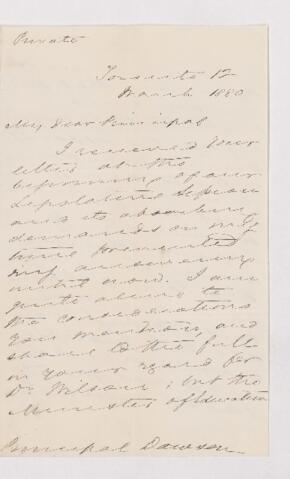 Private
Toronto 12
March 1880
My Dear Principal
I received your
letter at the
beginning of our
Legislative Session
and its absorbing
demands on my
time prevented
my answering
until now. I am
quite alive to
the considerations
you mention, and
share to the full
in your regard for
Dr Wilson; but the
Minister of Education
Principal Dawson